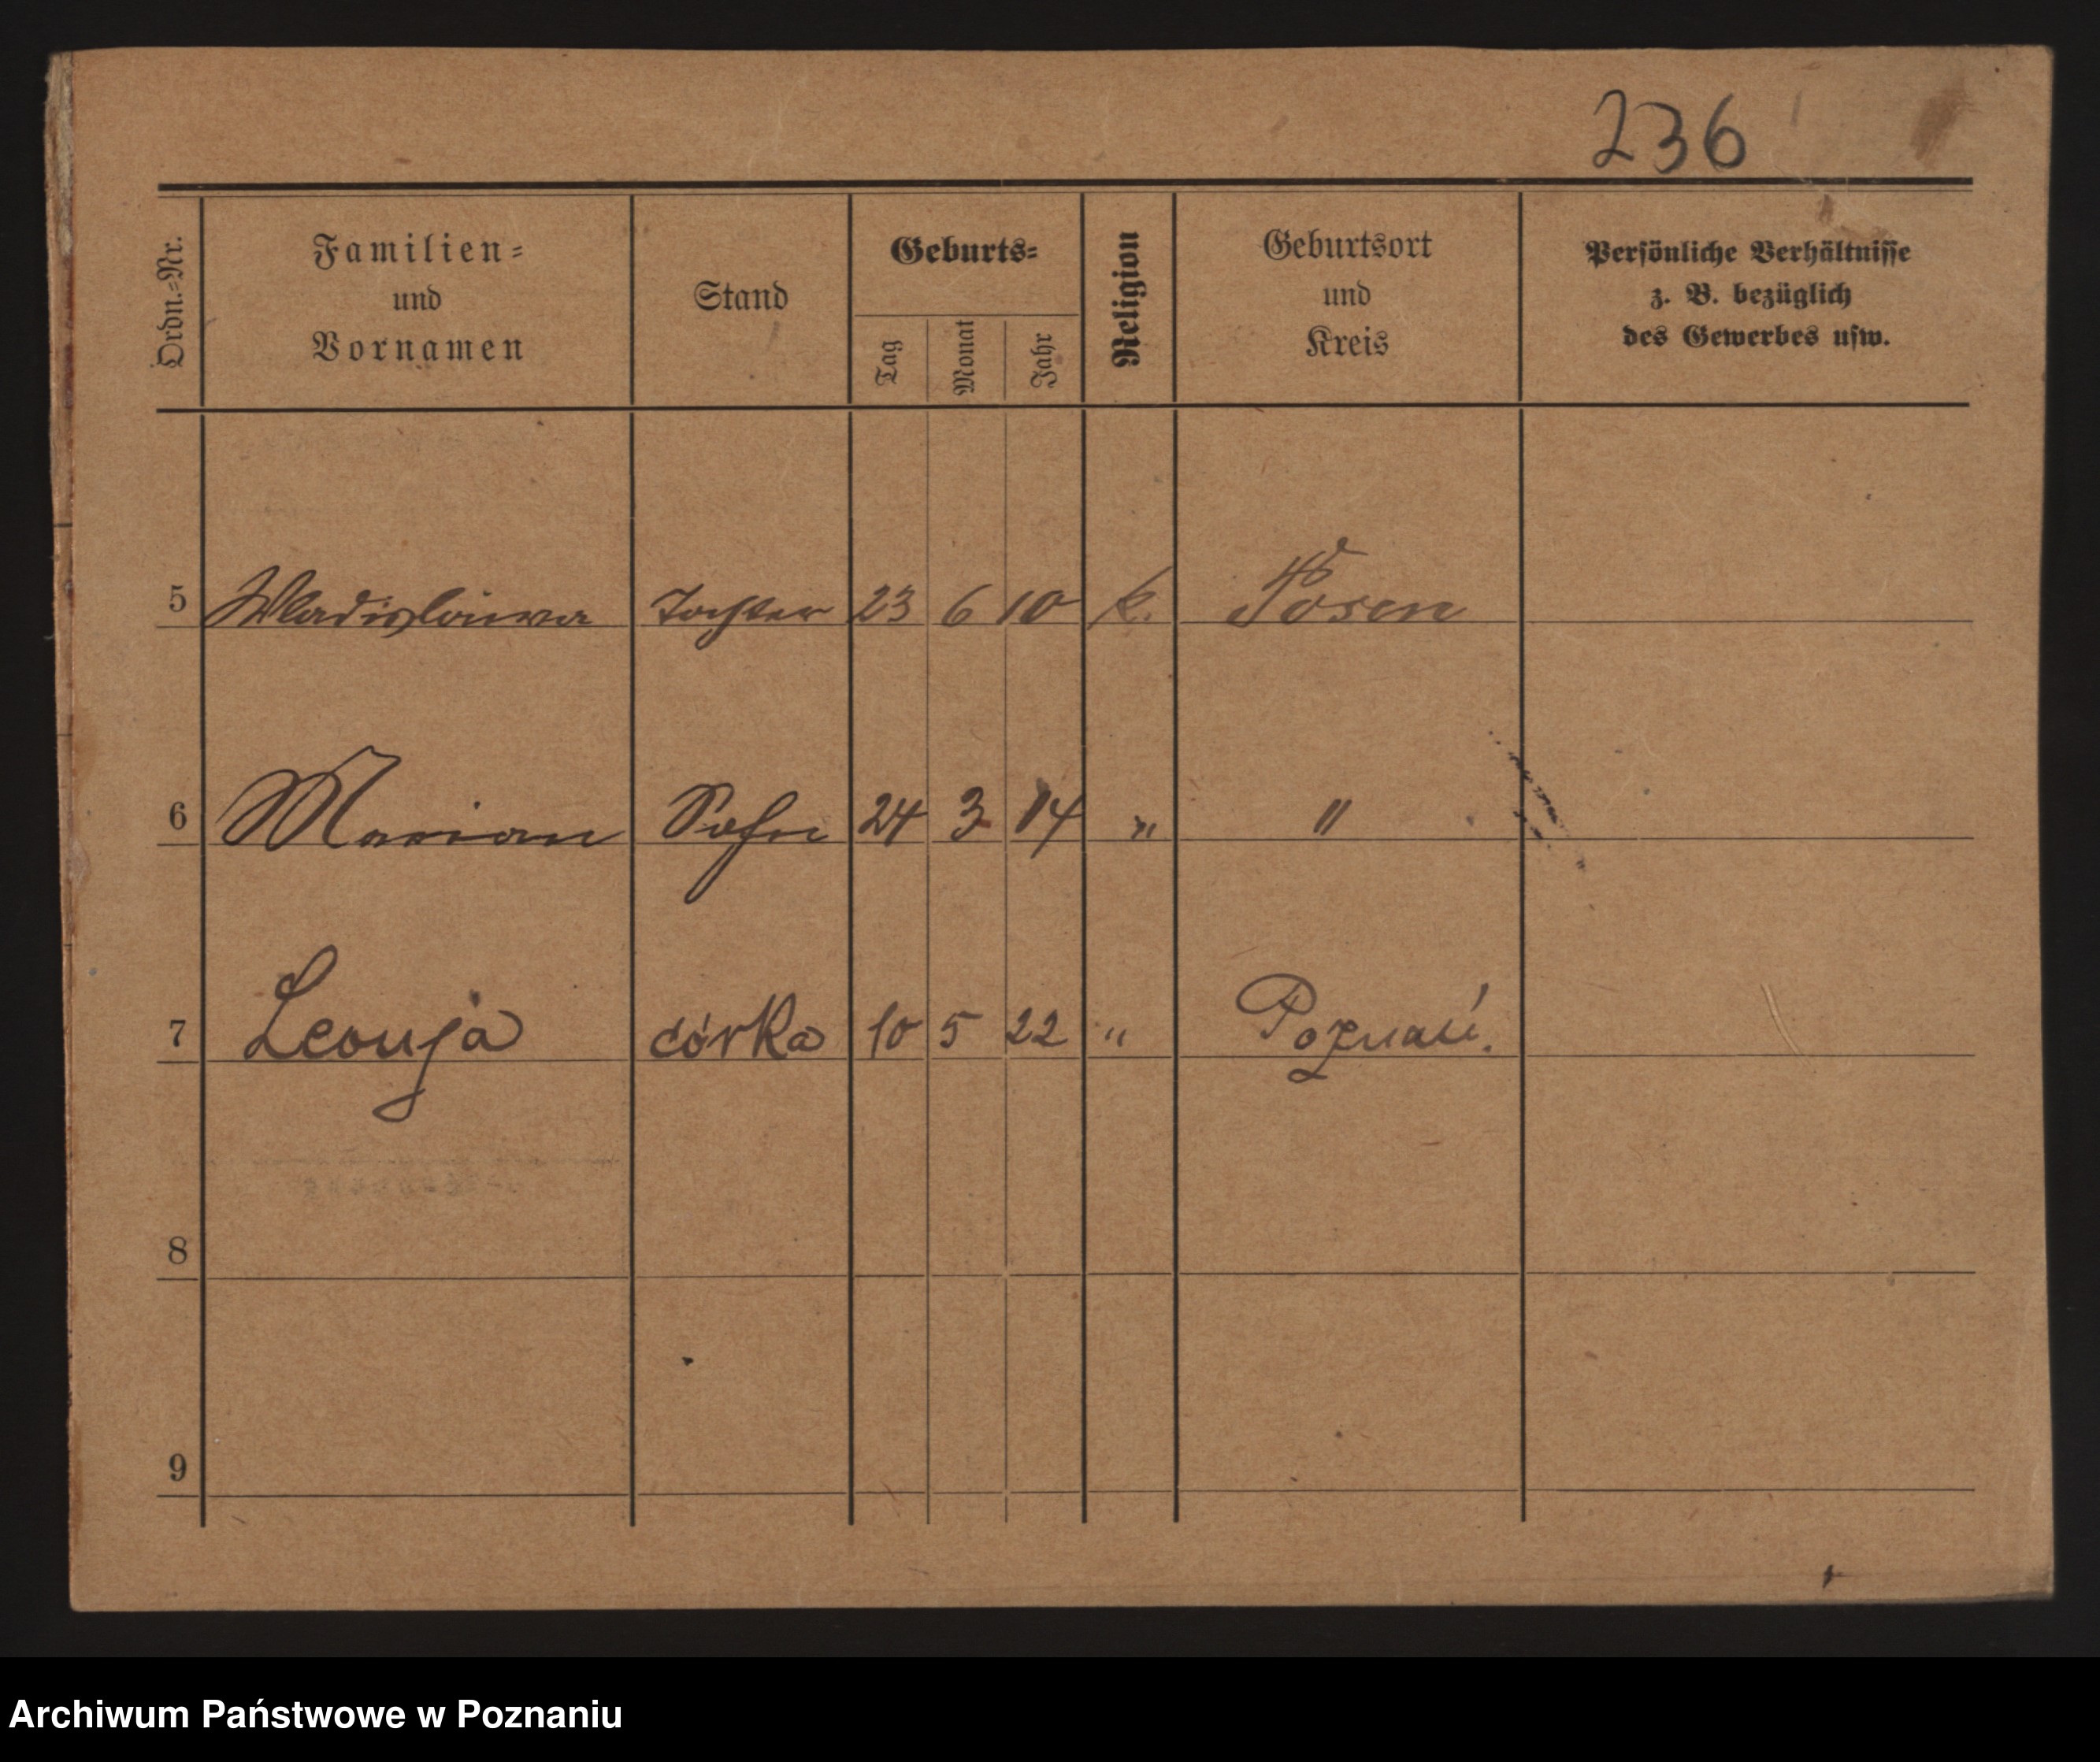 236
Ordn.-Nr.
Familien-
und
Vornamen
Stand
Geburts-
Tag
Monat
Jahr
Religion
Geburtsort
und
Kreis
Persönliche Verhältnisse
z. B. bezüglich
des Gewerbes usw.
5 Wladislawa Tochter 23 6 10 k. Posen
6 Marian Sohn 24 3 14 " "
7 Leonja córka 10 5 22 " Poznań.
8
9
Archiwum Państwowe w Poznaniu